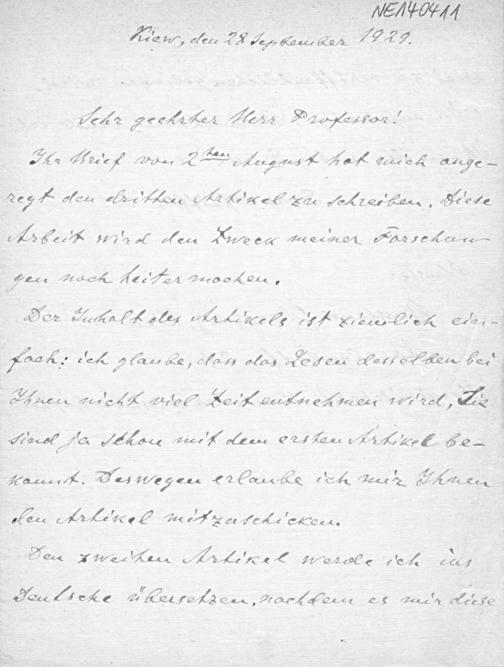 NEA40411
Kiew, den 28 September 1929.
Sehr geehrter Herr Professor!
Ihr Brief von 2ten August hat mich ange-
regt den dritten Artikel zu schreiben. Diese
Arbeit wird den Zweck meiner Forschun
gen noch heiter machen.
Der Inhalt des Artikels ist ziemlich ein-
fach: ich glaube, dass das Lesen desselben bei
Ihnen nicht viel Zeit entnehmen wird, Sie
sind ja schon mit dem ersten Artikel be-
kannt. Deswegen erlaube ich mir Ihnen
den Artikel mitzuschicken.
Den zweiten Artikel werde ich ins
Deutsche übersetzen, nachdem es mir diese